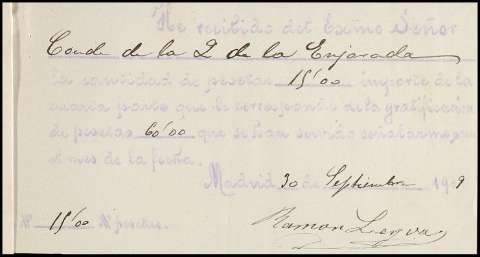 He recibido del Exmo Señor
Conde de la Q de la Enjarada
la cantidad de pesetas 15'00 importe de la
cuarta parte que le corresponde de la gratificación
de pesetas 60'00 que se han servido señalarme por
el mes de la fecha.
Madrid 30 de Septiembre 19 9
15'00 pesetas.
Ramon Leyva